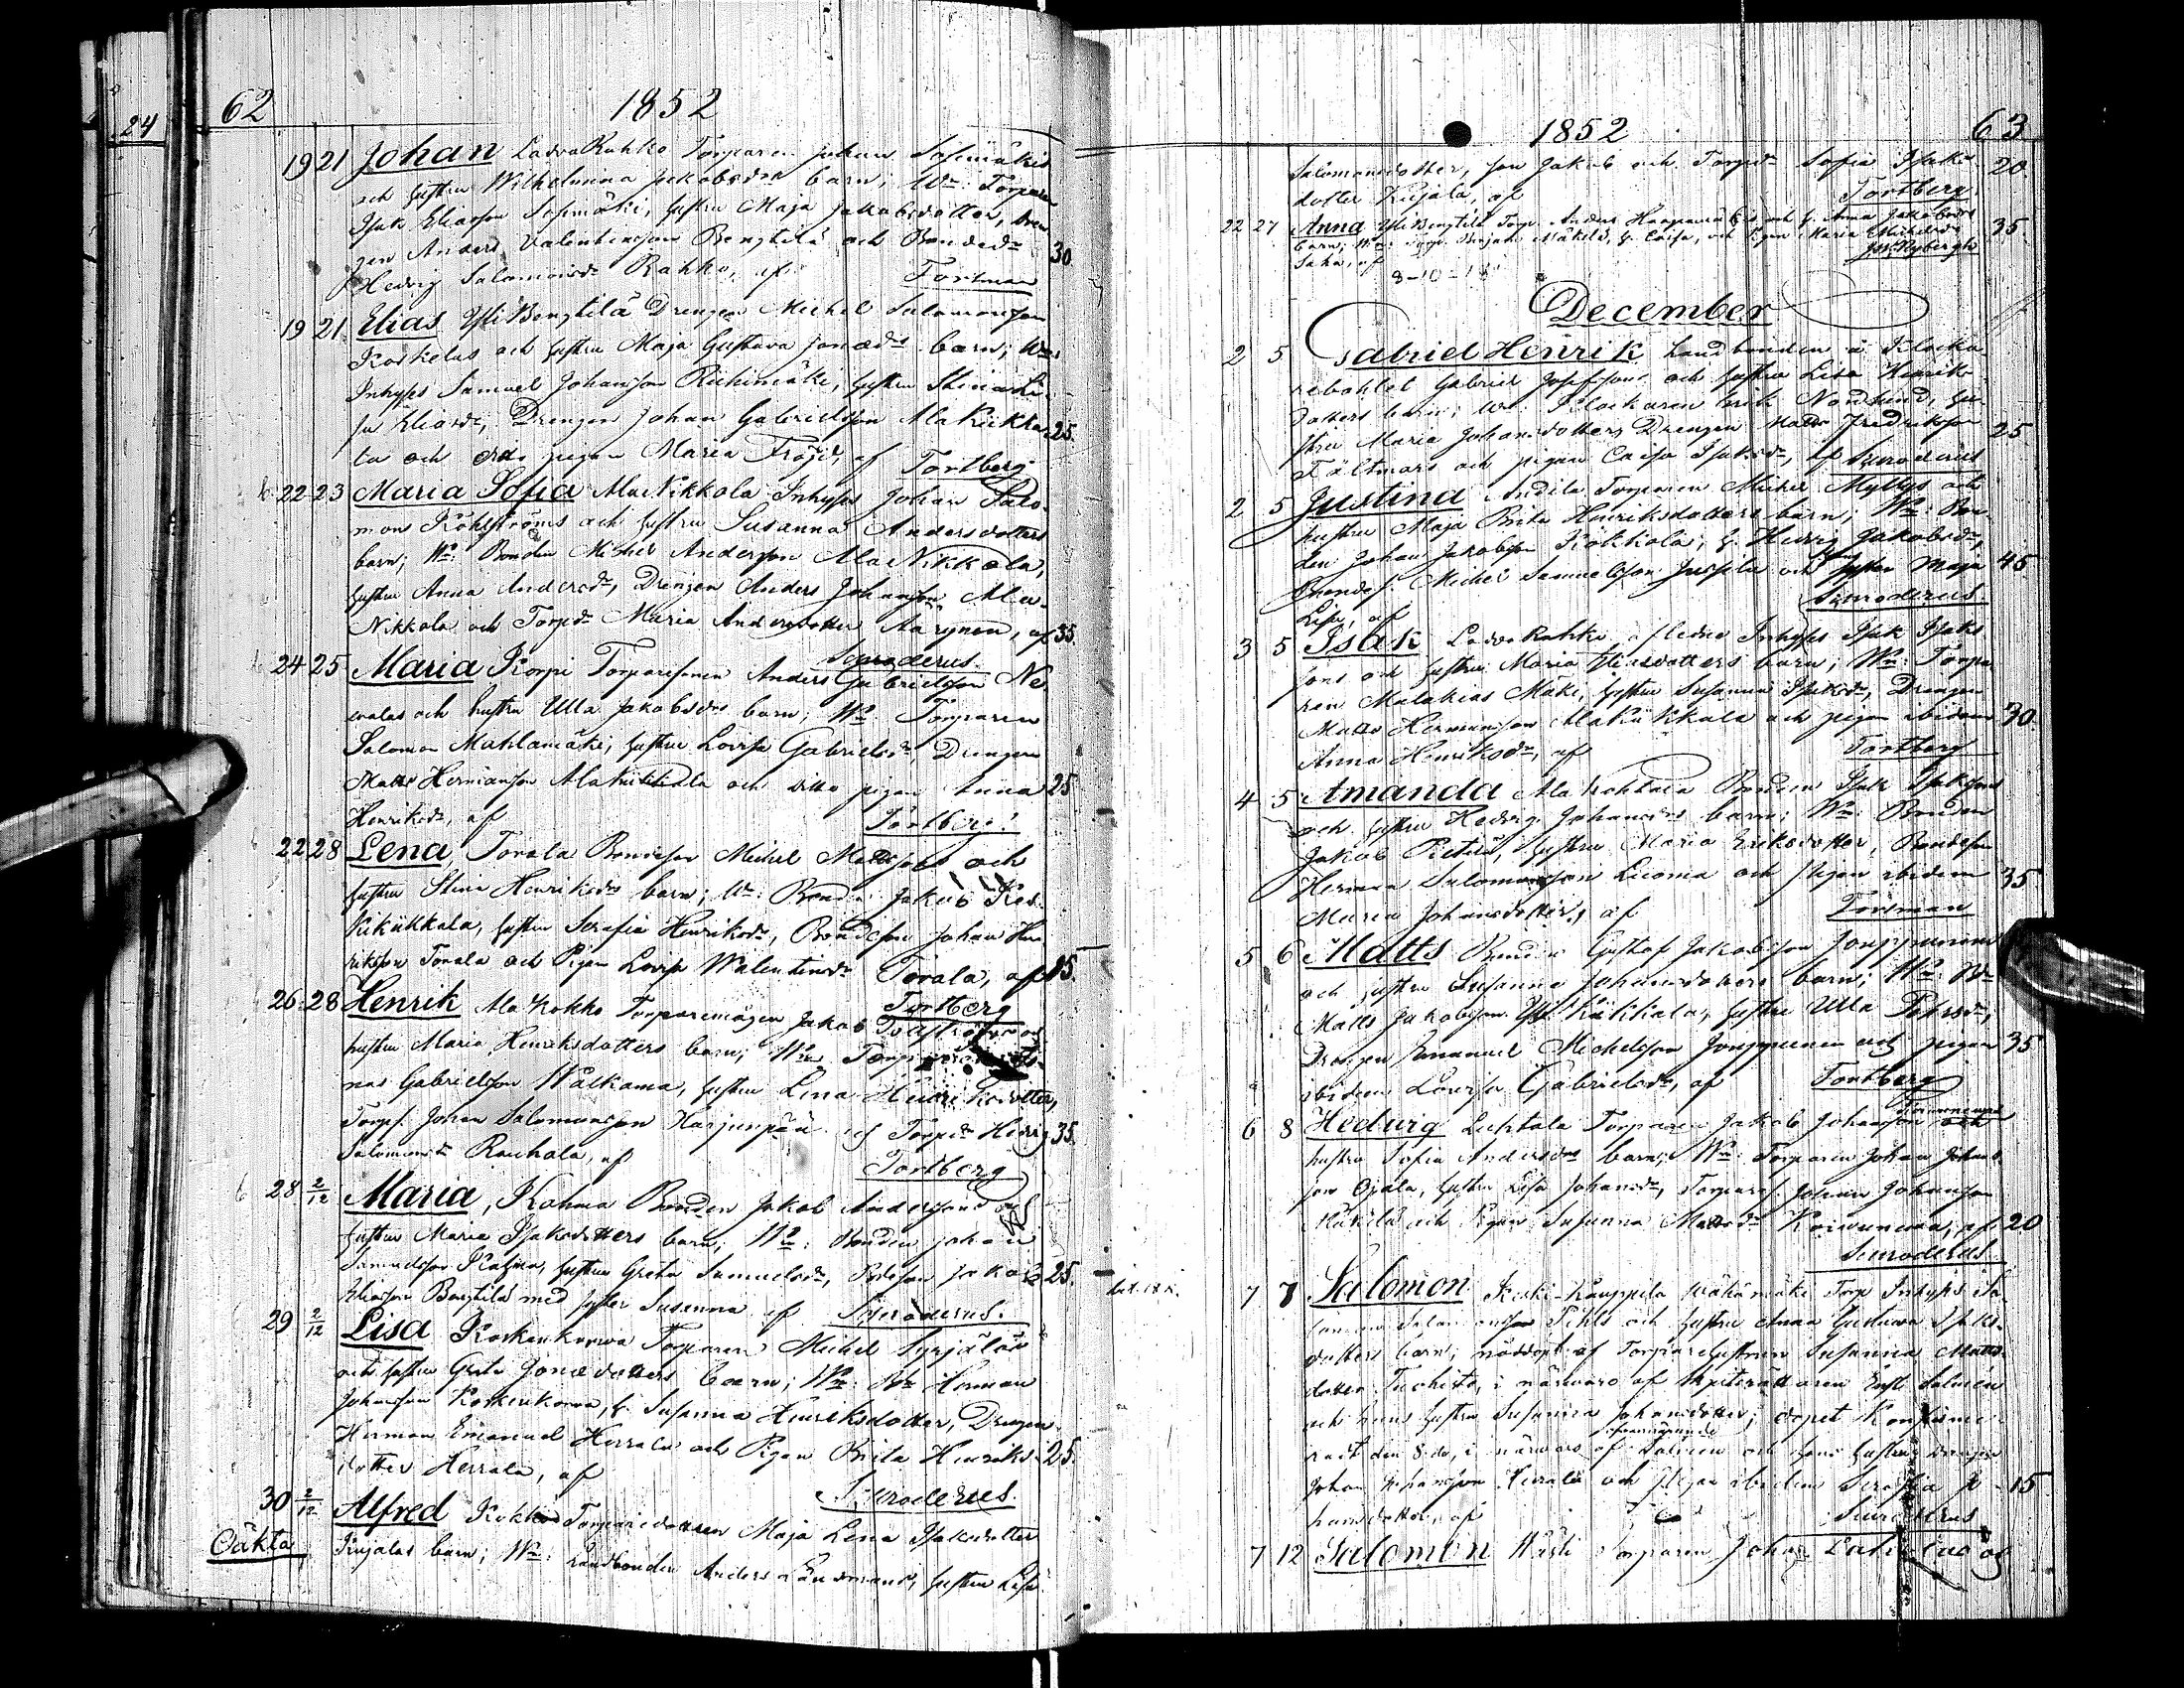 24
62
1852
19 21 Johan LadvaRahko Torparen Johan Sofimäkis
och hustru Wilhelmina Jakobsdrs barn; Wn: Torparen
Isak Eliasson Sofimäki, hustru Maja Jakobsdotter, dren
gen Anders Valentinsson Bengtilä och Bondedr 30
Hedvig Salomonsdr Rahko, af Forsman
19 21 Elias YliBengtilä Drengen Michel Salomonsson
Koskelas och hustru Maja Gustava Jonædrs barn; Wn:
Inhyses Samuel Johansson Riihimäki, hustru Stina Li-
sa Eliasdr, Drengen Johan Gabrielsson AlaKiikka 25.
la och pigan Maria Fröjd, af Tortberg
22 23 Maria Sofia AlaNikkola Inhyses Johan Salo-
mon Kohlströms och hustru Susanna Andersdotters
barn; Wn: Bonden Michel Andersson AlaNikkola,
hustru Anna Andersdr, Drengen Anders Johansson Ala-
Nikkola och Torpdr Maria Andersdotter , af 35.
Snroderus.
24 25 Maria Korpi Torparesonen Anders Gabrielsson Ne-
valas och hustru Ulla Jakobsdrs barn; Wn: Torparen
Salomon Mahlamäki, hustru Lovisa Gabrielsdr, Drengen
Matts Hermansson och ditto pigan Anna 25
Henriksdr, af Tortberg.
22 28 Lena, Torala Bondeson Michel Mattssons och
hustru Stina Henriksdrs barn; Wn: Bonden Jakob Kes-
kikikkala, hustru Serafia Henriksdr, Bondeson Johan Hen
riksson Torala och Pigan Lovisa Walentinsdr Torala, af 15.
26 28 Henrik AlaKokko Torparemågen Jakob Tortberg
hustru Maria Henriksdotters barn; Wn:
nas Gabrielsson Walkama, hustru Lena Henriksdotter,
Torps. Johan Salomonsson Harjunpää och Torpdr Hedvig 35.
Salomonsdr Rauhala, af Tortberg
28 2/12 Maria, Kohma Bonden Jakob Anderssons och
hustru Maria Isaksdotters barn; Wn: Bonden Johan
Samuelsson hustru Greta Samuelsdr, Bondeson Jakob 25.
Eliasson Bengtilä med syster Susanna af Snroderus.
29 2/12 Lisa Koskenkorva Torparen Michel Syrjäläs
och hustru Greta Jonædotters barn; Wn: Bn Herman
Johansson Koskenkorva, h. Susanna Henriksdotter, Drengen
Herman Emanuel Herrala och Pigan Brita Henriks- 25.
dotter Herrala, af Snroderus.
30 2/12 Alfred Kokko Torparedottren Maja Lena Isaksdotter
Oäkta Kujalas barn; Wn: Landbonden Anders hustru Lisa
1852
63
Salomonsdotter, son Jakob och Torpdr Sofia Isaks- 20
dotter Kujala, af Tortberg
22 27 Anna YliBengtilä Torp. Anders och h. Anna Jakobsdrs 35
barn; Wn: Torp. Benjam. Mäkelä, h. Caisa, och Pigan Maria Michelsdr
Saha, af J.W. Nybergh
8-10-18
December
2 5 Gabriel Henrik Landbonden å Klocka-
rebohlet Gabriel Josefssons och hustru Lisa Henriks-
dotters barn; Wn: Klockaren Erik Nordlund, hu-
stru Maria Johansdotter, Drengen Matts Fredriksson 25
Fältmars och pigan Caisa Isaksdr, af Snroderus
2 5 Justina Andila Torparen Michel Myllys och
hustru Maja Brita Henriksdotters barn; Wn: Bon-
den Johan Jakobsson Kokkola, h. Hedvig Jakobsdr,
Bondes. Michel Samuelsson Jussila och syster Maja 45
Lisa, af Snroderus.
3 5 Isak LadvaRahko afledne Inhyses Isak Isaks
sons och hustru Maria Eliædotters barn; Wn: Torpa
ren Malakias Mäki, hustru Susanna Isaksdr, Drengen
Matts Hermansson AlaKiikkala och pigan ibidem 30.
Anna Henriksdr, af Tortberg
4 5 Amanda Ala Bonden Isak Isakssons
och hustru Hedvig Johansdrs barn; Wn: Bonden
Jakob Pietilä, hustru Maria Eriksdotter, Bondeson
Herman Salomonsson Luoma och Pigan ibidem 35
Maria Johansdotter, af Forsman
5 6 Matts Bonden Gustaf Jakobsson Jouppunens
och hustru Susanna Johansdotters barn; Wn: Bn
Matts Jakobsson YliKiikkala, hustru Ulla Petrsdr,
Drengen Emanuel Michelsson Jouppunen och pigan 35
ibidem Lovisa Gabrielsdr, af Tortberg
6 8 Hedwig Luhtala Torparen Jakob Johansson och
hustru Sofia Andersdrs barn; Wn: Torparen Johan Johans
son Ojala, hustru Lisa Johansdr, Torpares. Johan Johansson
Mäkelä och Pigan Susanna Mattsdr af 20
Snroderus.
7 7 Salomon Keski-Kauppila Wähämäki Torp Inhyses Sa-
lomon Salomonsson och hustru Anna Gustava Isaks-
dotters barn; nöddöpt af Torparehustrun Susanna Matts-
dotter i närvaro af Salmén
och hans hustru Susanna Johansdotter; dopet Konfirme-
radt den 8 do, i närvaro af Salmén och hans hustru, drengen
Johan Johansson Herrala och Pigan ibidem Serafia Jo- 15
hansdotter, af Snroderus
7 12 Salomon Hästi Torparen Johan och